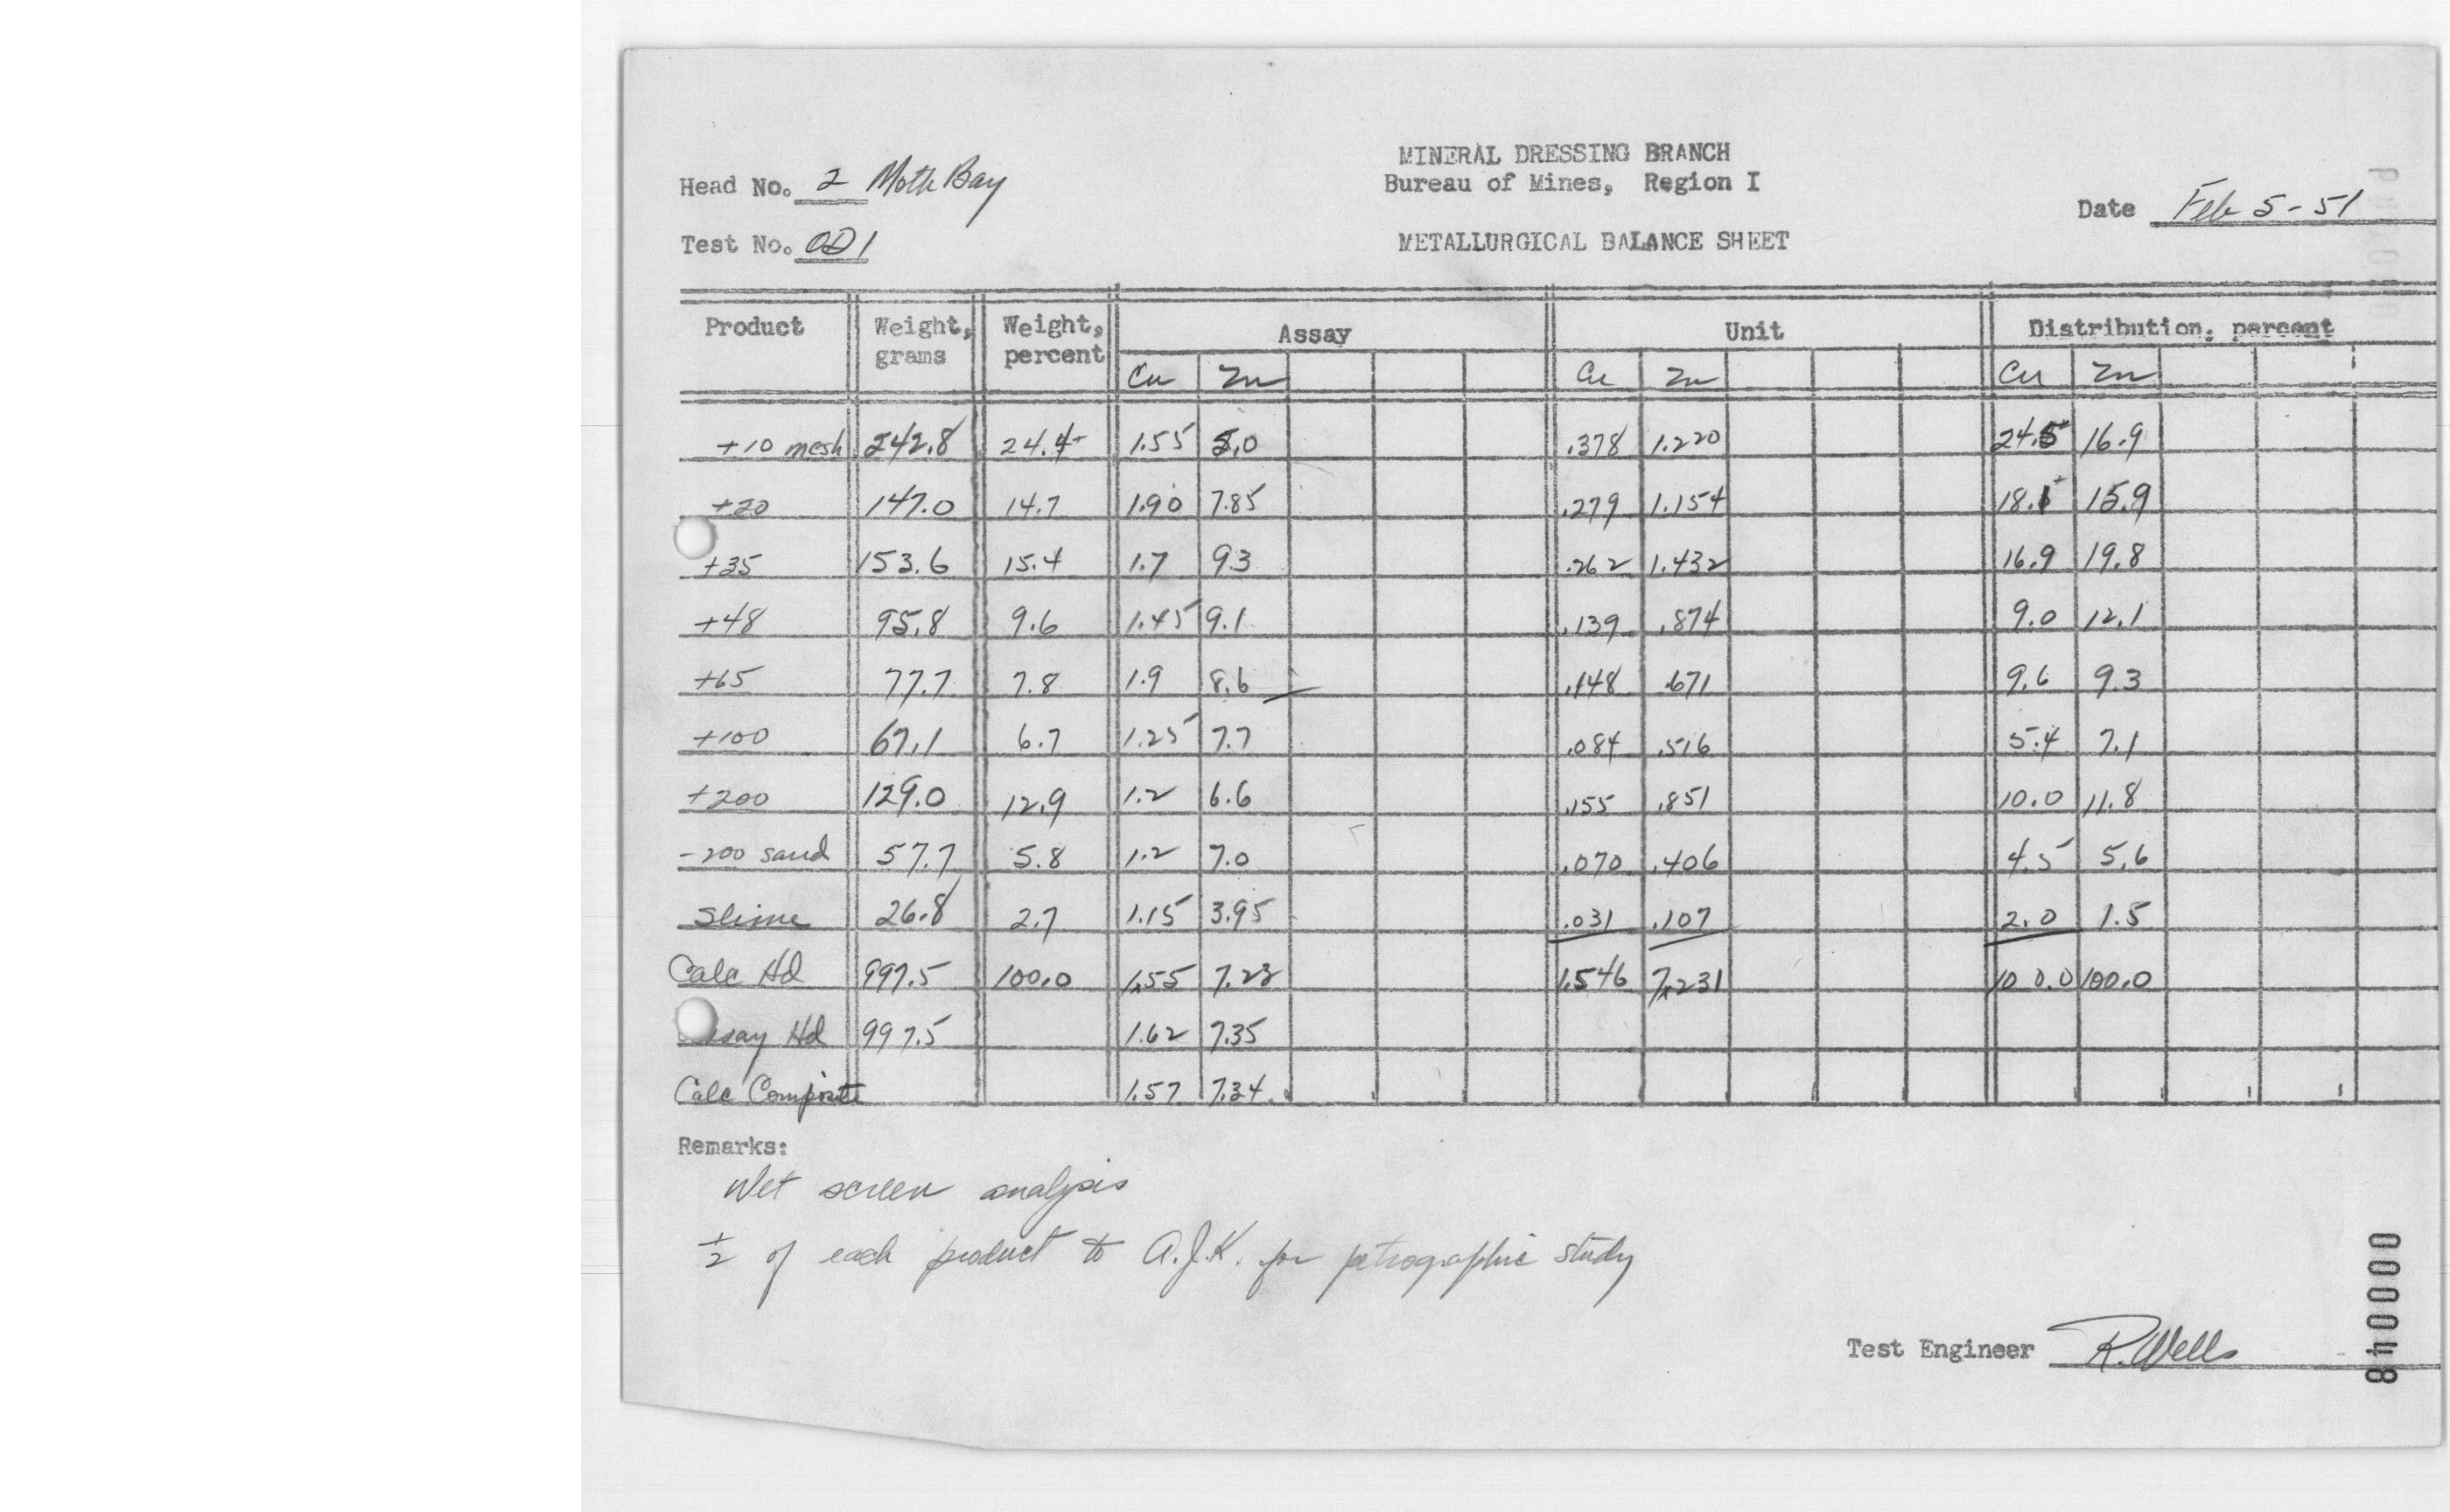 MINERAL DRESSING BRANCH
Head No. 2 Moth Bay Bureau of Mines, Region I
Date Feb 5-51
Test No. OD1 METALLURGICAL BALANCE SHEET
Product Weight, grams Weight, percent Assay Unit Distribution, percent
Cu Zn Cu Zn Cu Zn
+10 mesh 242.8 24.4 1.55 5.0 .378 1.220 24.5 16.9
+20 147.0 14.7 1.90 7.85 .279 1.154 18.1 15.9
+35 153.6 15.4 1.7 9.3 .262 1.432 16.9 19.8
+48 95.8 9.6 1.45 9.1 .139 .874 9.0 12.1
+65 77.7 7.8 1.9 8.6 .148 .671 9.6 9.3
+100 67.1 6.7 1.25 7.7 .084 .516 5.4 7.1
+200 129.0 12.9 1.2 6.6 .155 .851 10.0 11.8
-200 sand 57.7 5.8 1.2 7.0 .070 .406 4.5 5.6
Slime 26.8 2.7 1.15 3.95 .031 .107 2.0 1.5
Calc Hd 997.5 100.0 1.55 7.23 1.546 7.231 100.0 100.0
Hd 997.5 1.62 7.35
Calc Composite 1.57 7.34
Remarks:
Wet screen analysis
1/2 of each product to A.J.K. for petrographic study
Test Engineer R. Wells
000048